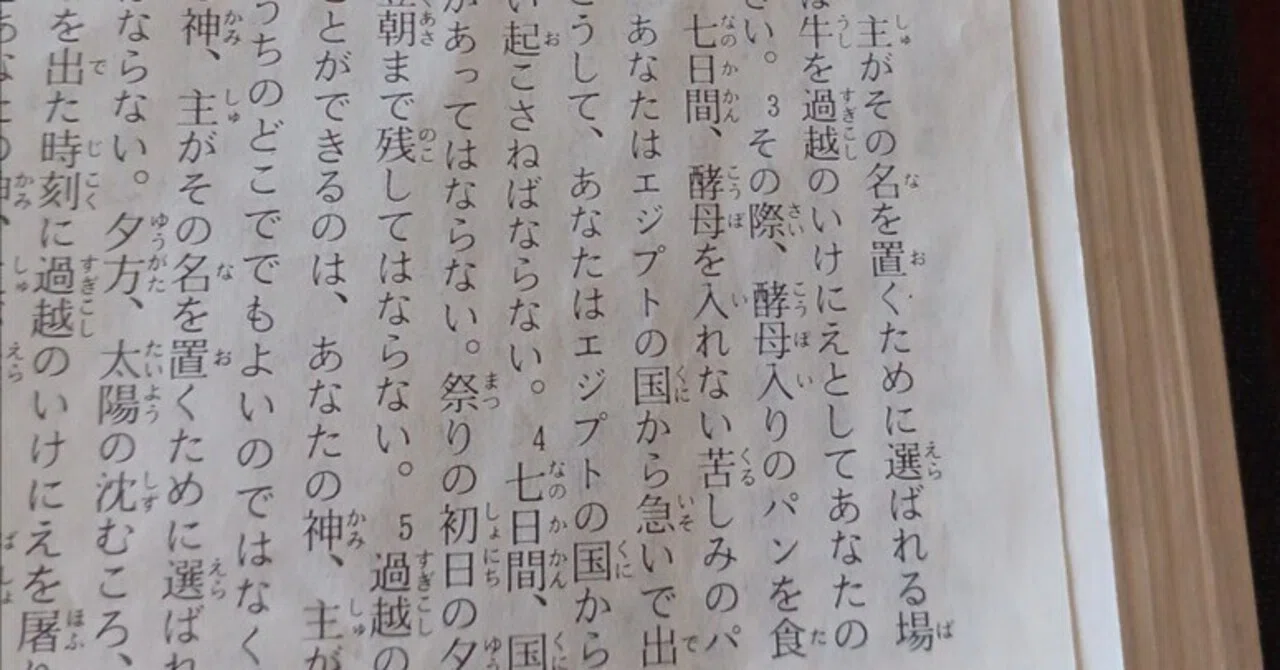 主がその名を置くために選ばれる場
は牛を過越のいけにえとしてあなたの
い。3その際、酵母入りのパンを食
七日間、酵母を入れない苦しみのパ
あなたはエジプトの国から急いで出
うして、あなたはエジプトの国から
い起こさねばならない。4七日間、国
があってはならない。祭りの初日の夕
翌朝まで残してはならない。5過越の
とができるのは、あなたの神、主が
うちのどこででもよいのではなく
神、主がその名を置くために選ばれ
ならない。夕方、太陽の沈むころ、
を出た時刻に過越のいけにえを屠り